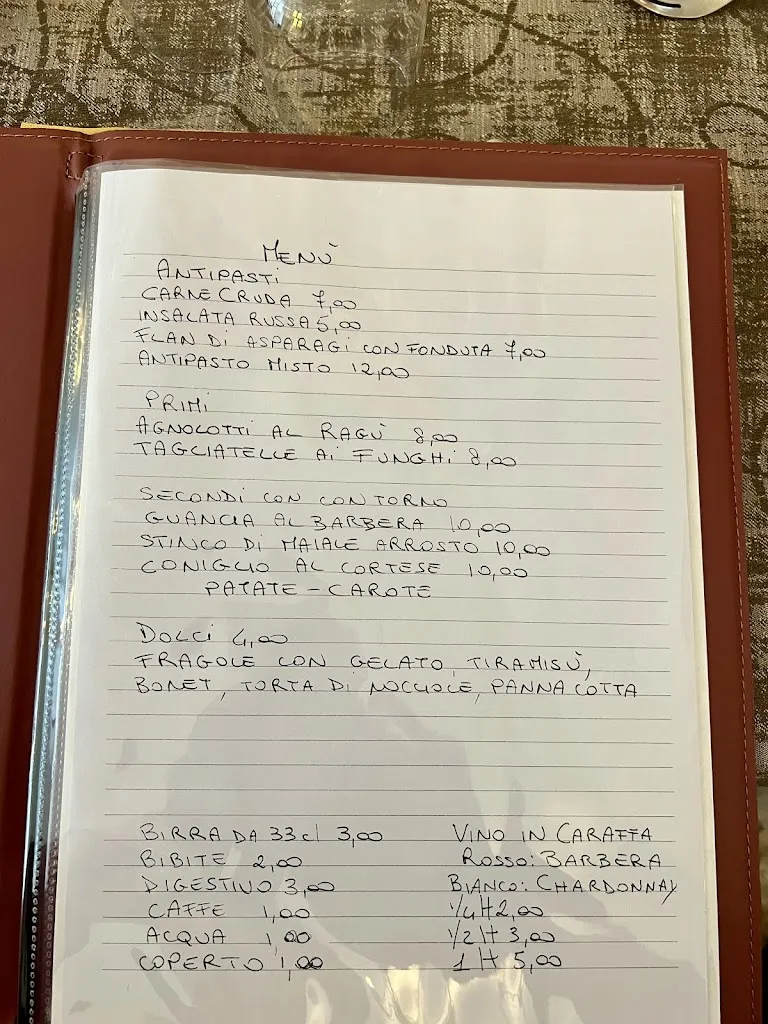 MENÙ
ANTIPASTI
CARNE CRUDA 7,00
INSALATA RUSSA 5,00
FLAN DI ASPARAGI CON FONDUTA 7,00
ANTIPASTO MISTO 12,00
PRIMI
AGNOLOTTI AL RAGÙ 8,00
TAGLIATELLE AI FUNGHI 8,00
SECONDI CON CONTORNO
GUANCIA AL BARBERA 10,00
STINCO DI MAIALE ARROSTO 10,00
CONIGLIO AL CORTESE 10,00
PATATE - CAROTE
DOLCI 4,00
FRAGOLE CON GELATO, TIRAMISÙ,
BONET, TORTA DI NOCCIOLE, PANNA COTTA
BIRRA DA 33 cl 3,00
BIBITE 2,00
DIGESTIVO 3,00
CAFFE 1,00
ACQUA 1,00
COPERTO 1,00
VINO IN CARAFFA
ROSSO: BARBERA
BIANCO: CHARDONNAY
1/4 lt 2,00
1/2 lt 3,00
1 lt 5,00